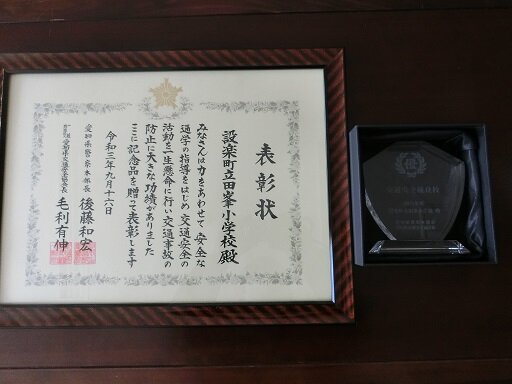 表彰状
設楽町立田峯小学校殿
みなさんは力をあわせて安全な
通学の指導をはじめ交通安全の
活動を一生懸命に行い交通事故の
防止に大きな功績がありました
ここに記念品を贈って表彰します
令和三年九月十六日
愛知県警察本部長 後藤和宏
愛知県交通安全協会長 毛利有伸